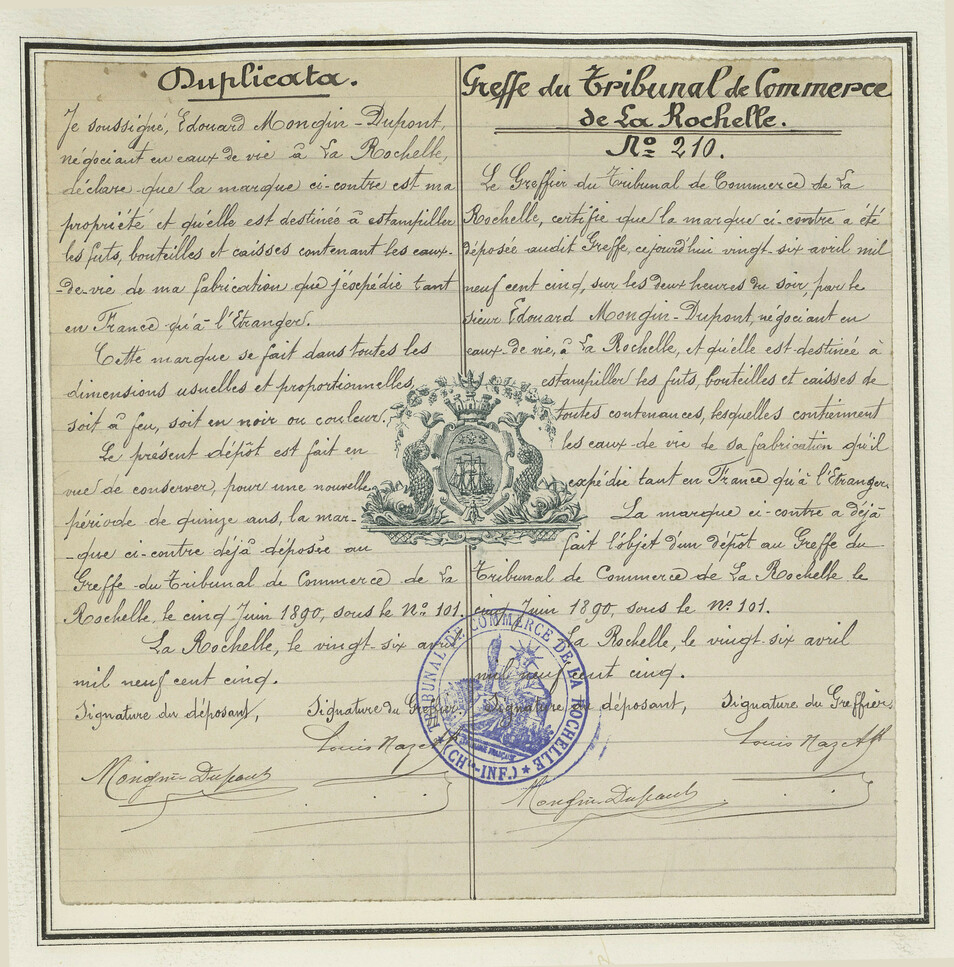 Duplicata.
Je soussigné, Edouard Mongin-Dupont,
négociant en eaux de vie à La Rochelle,
déclare que la marque ci-contre est ma
propriété et qu'elle est destinée à estampiller
les futs, bouteilles et caisses contenant les eaux-
-de-vie de ma fabrication que j'expédie tant
en France qu'à l'Etranger.
Cette marque se fait dans toutes les
dimensions usuelles et proportionnelles,
soit à feu, soit en noir ou couleur.
Le présent dépôt est fait en
vue de conserver, pour une nouvelle
période de quinze ans, la mar-
-que ci-contre déjà déposée au
Greffe du Tribunal de Commerce de La
Rochelle, le cinq Juin 1890, sous le No 101.
La Rochelle, le vingt-six avril
mil neuf cent cinq.
Signature du déposant, Signature du Greffier
Louis Naz
Mongin-Dupont
Greffe du Tribunal de Commerce
de La Rochelle.
No 210.
Le Greffier du Tribunal de Commerce de La
Rochelle, certifie que la marque ci-contre a été
déposée audit Greffe, cejourd'hui vingt-six avril mil
neuf cent cinq, sur les deux heures du soir, par le
sieur Edouard Mongin-Dupont, négociant en
eaux-de-vie, à La Rochelle, et qu'elle est destinée à
estampiller les futs, bouteilles et caisses de
toutes contenances, lesquelles contiennent
les eaux-de-vie de sa fabrication qu'il
expédie tant en France qu'à l'Etranger.
La marque ci-contre a déjà
fait l'objet d'un dépôt au Greffe du
Tribunal de Commerce de La Rochelle le
cinq Juin 1890, sous le No 101.
La Rochelle, le vingt-six avril
mil neuf cent cinq.
Signature du déposant, Signature du Greffier
Louis Naz
Mongin-Dupont
TRIBUNAL DE COMMERCE DE LA ROCHELLE
(CHte-INF.)